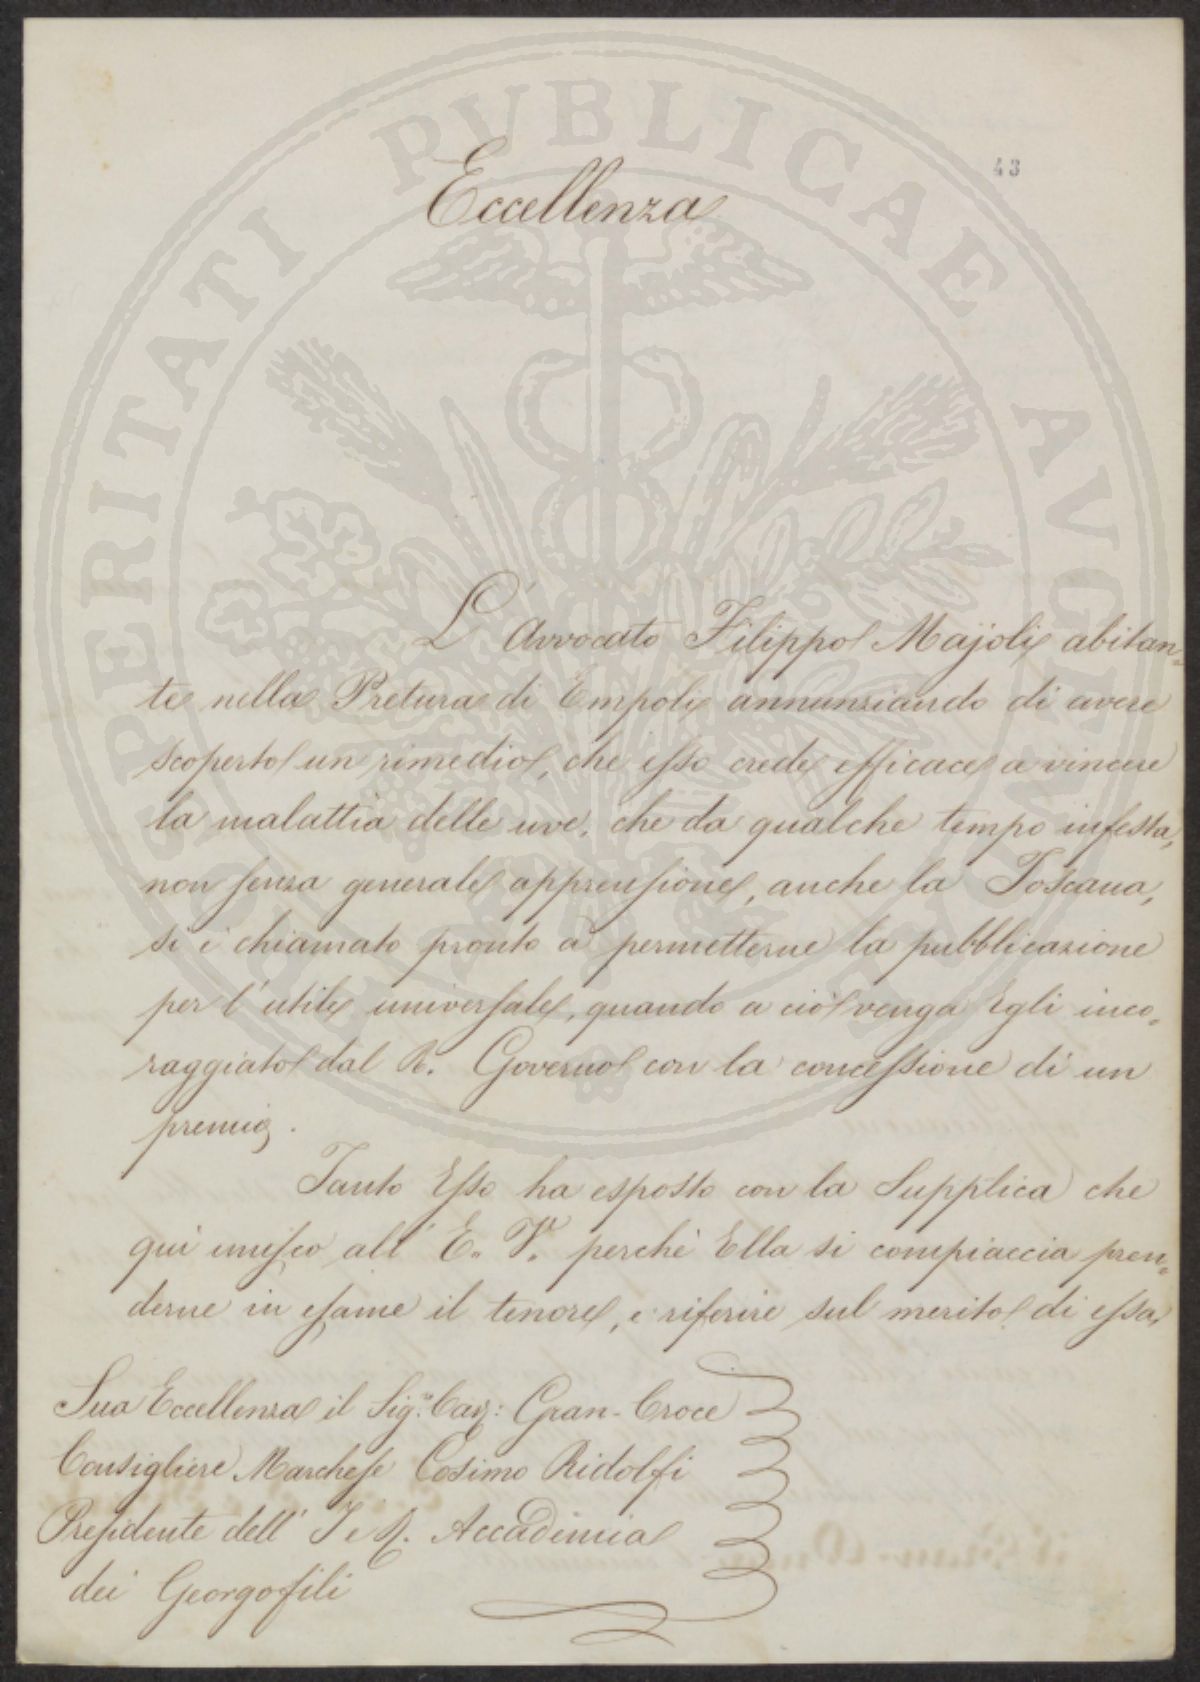 43
Eccellenza
L'Avvocato Filippo Majoli abitan=
te nella Pretura di Empoli annunziando di avere
scoperto un rimedio, che esso crede efficace a vincere
la malattia delle uve, che da qualche tempo infesta,
non senza generale apprensione, anche la Toscana,
si è chiamato pronto a permetterne la pubblicazione
per l'utile universale, quando a ciò venga Egli inco=
raggiato dal R. Governo con la concessione di un
premio.
Tanto Esso ha esposto con la Supplica che
quì unisco all'E. V. perchè Ella si compiaccia pren=
derne in esame il tenore, e riferire sul merito di essa
Sua Eccellenza il Sig.r Cav: Gran-Croce
Consigliere Marchese Cosimo Ridolfi
Presidente dell'I e R. Accademia
dei Georgofili
PROSPERITATI PUBLICAE AVGENDAE